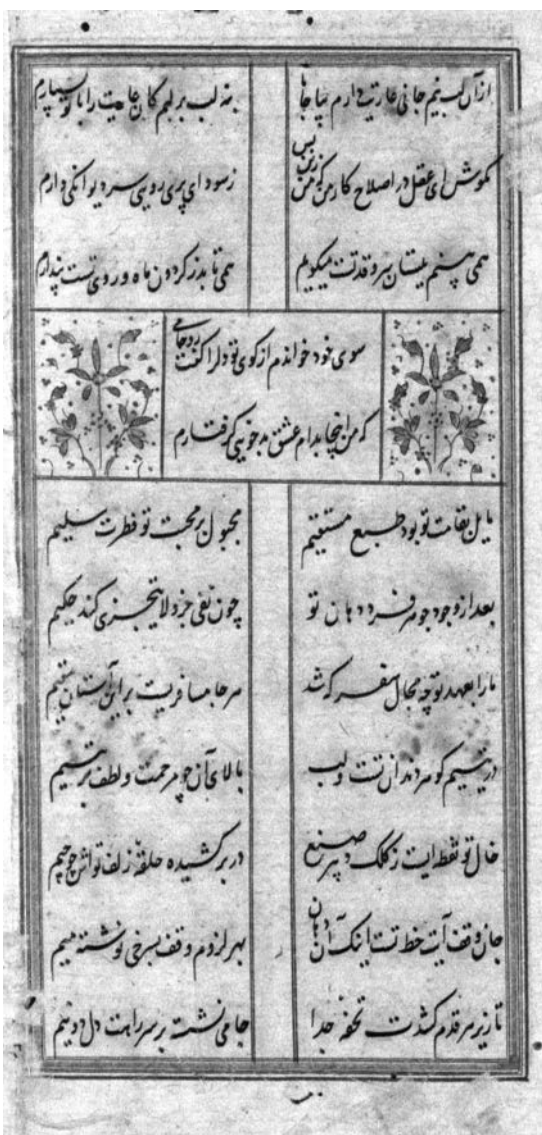 ازآن لب نیم جانی عاریت دارم بیا جانا
بنه لب بر لبم کان عاریت را با تو بسپارم
مکوش ای عقل در اصلاح کار من که من زین پس
ز سودای پری رویی سر دیوانگی دارم
همی بینم ببستان سرو قدتست میگویم
همی تابد ز گردون ماه و روی تست پندارم
سوی خود خواندم از کوی تو دل را گفت رو جامی
که من اینجا بدام عشق بدخویی گرفتارم
مایل بقامت تو بود طبع مستقیم
مجبول بر محبت تو فطرت سلیم
بعد از وجود جوهر فرد دهان تو
چون نفی جزء لا یتجزی کند حکیم
ما را بعهد تو چه مجال سفر که شد
هر جا مسافریست برین آستان مقیم
در یتیم گوهر دندان تست و لب
بالای آن چو مرحمت و لطف بر یتیم
خال تو نقطه ایست ز کلک دبیر صنع
در بر کشیده حلقه زلف تواش چو جیم
جان وقف آیت خط تست اینک آن دهان
بهر لزوم وقف بسرخی نوشته میم
تا زیر هر قدم کشدت تحفه جدا
جامی نشست بر سر راهت دل دو نیم